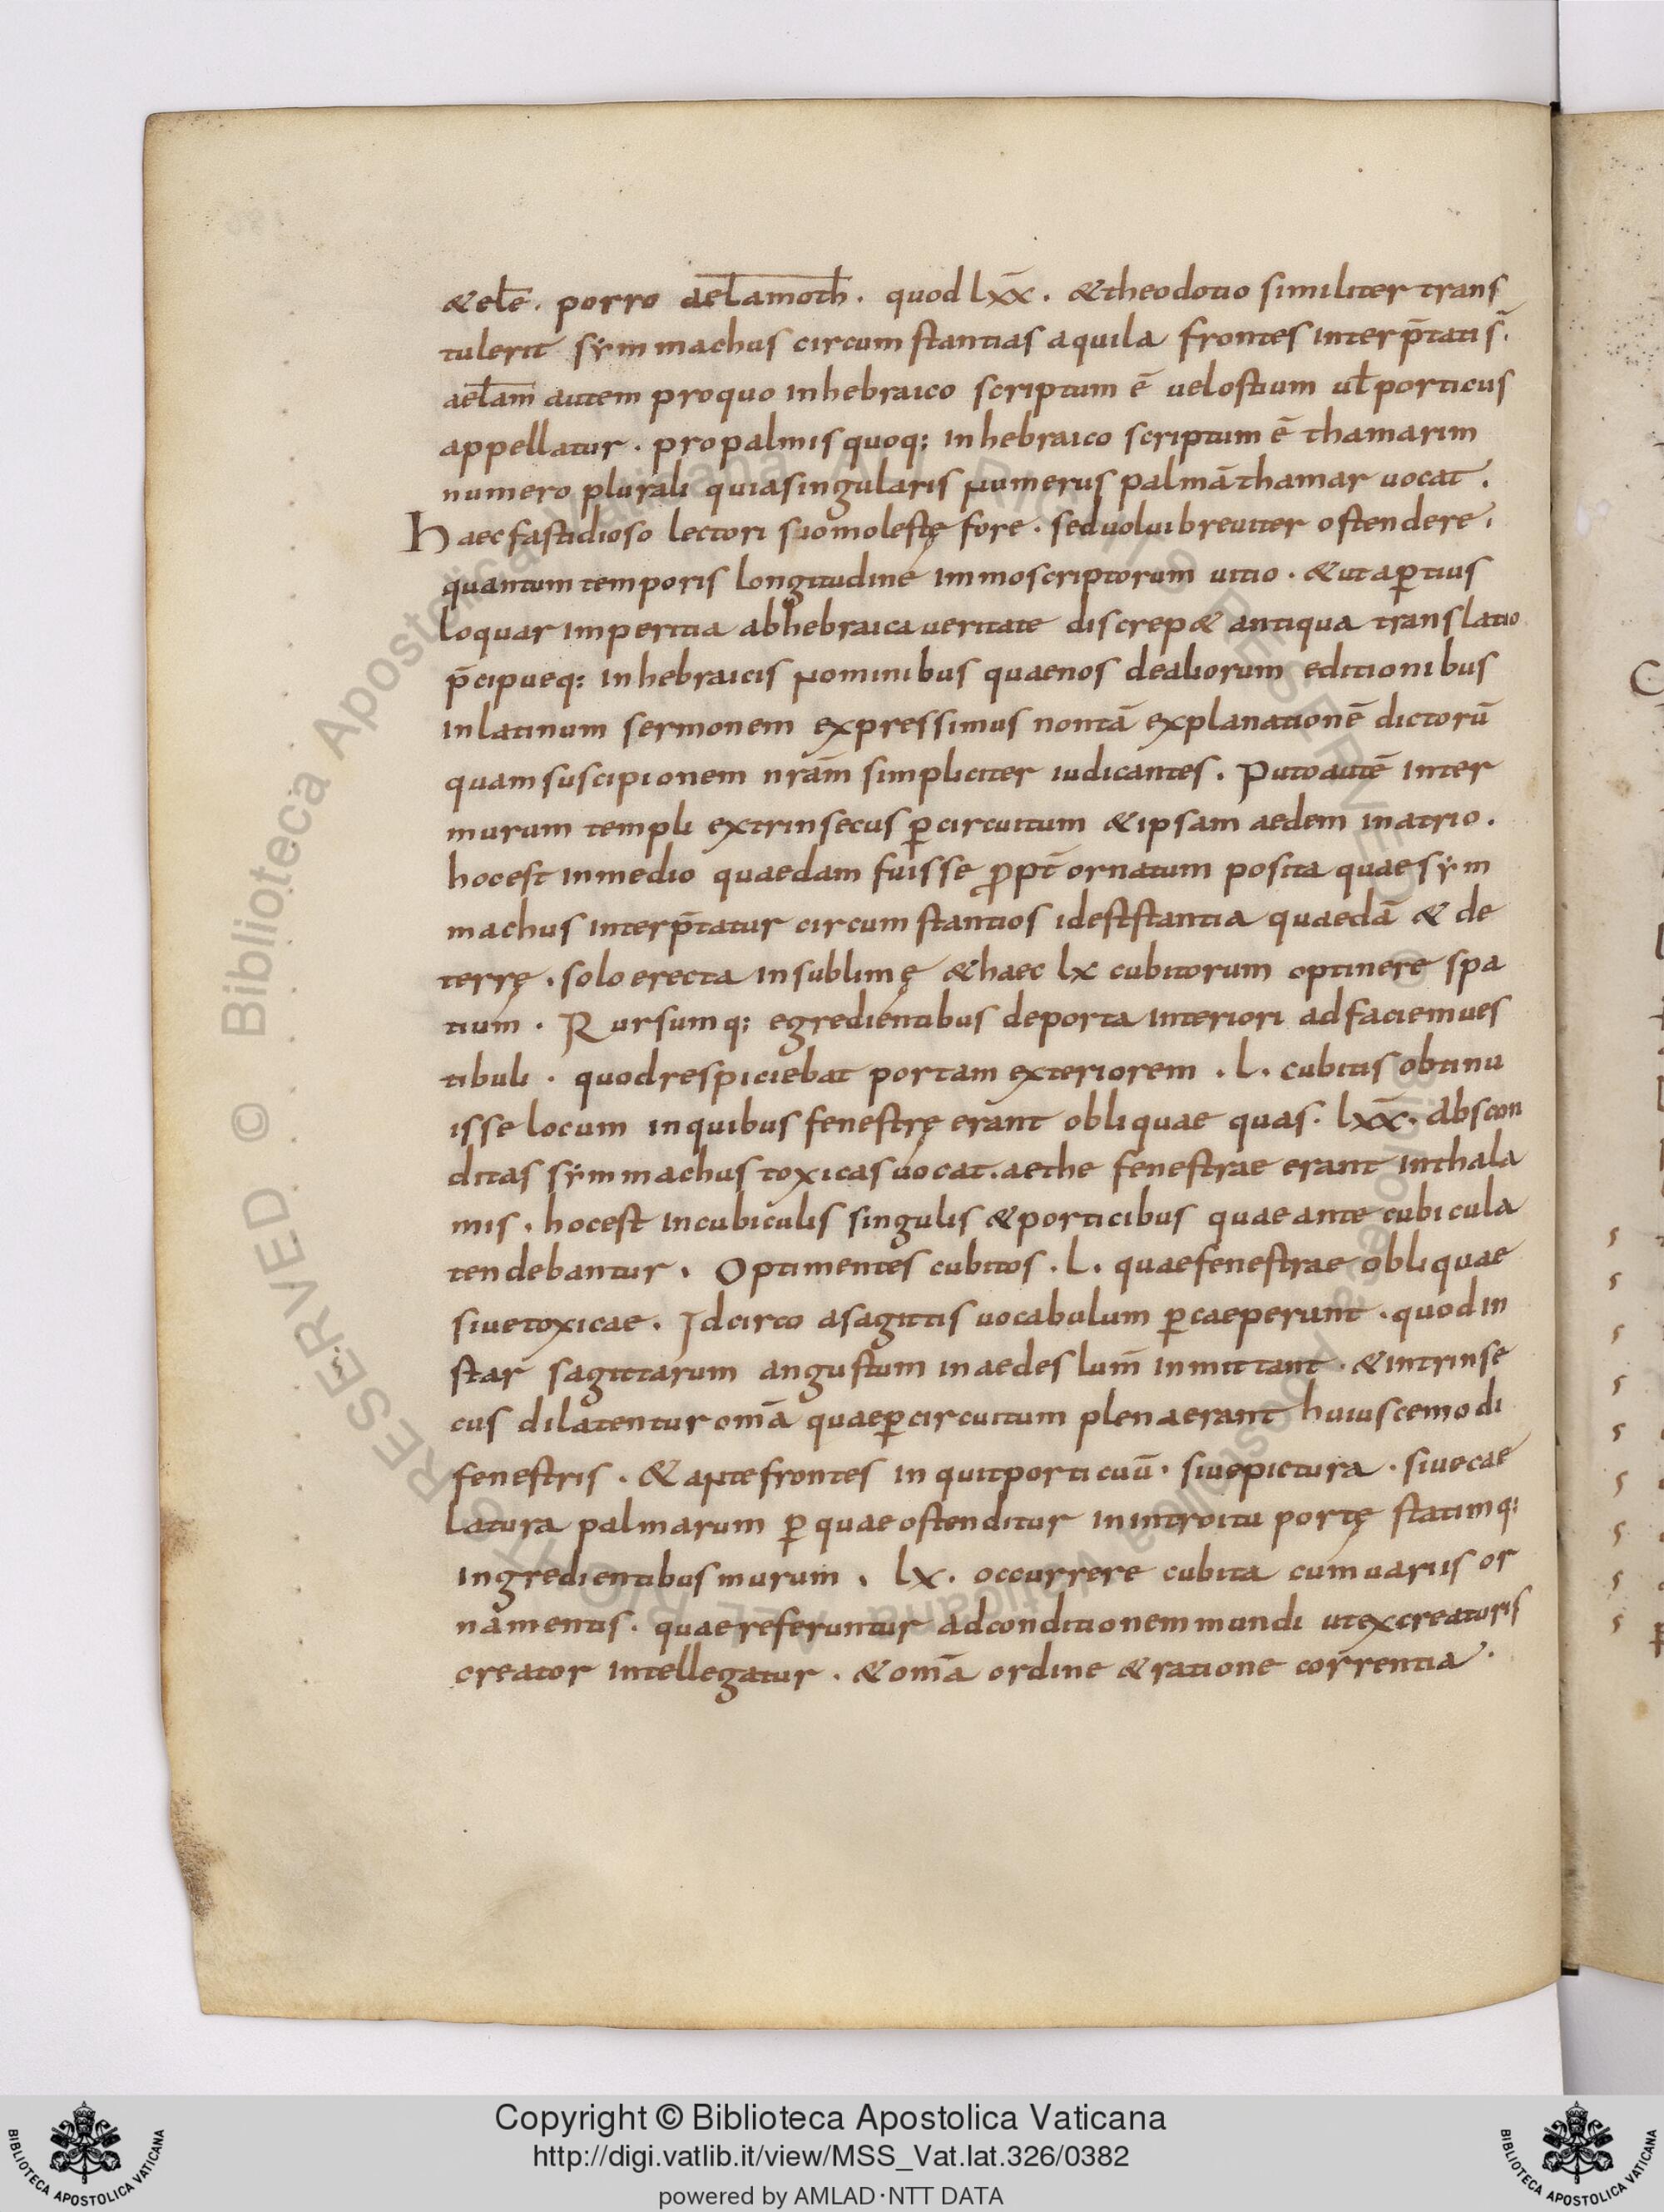 &ele̅. porro aelamoth̅. quod lx̅x̅. &theodotio similiter trans
tulerit sẏmmachus circumstantias aquila frontes interp̅tati s̅.
aela̅m̅ autem proquo inhebraico scriptum e̅ uelostium ul̅ porticus
appellatur. propalmis quoq; inhebraico scriptum e̅ thamarim
numero plurali quiasingularis numerus palma̅ thamar uocat.
Haecfastidioso lectori scio molestę fore. seduolui breuiter ostendere.
quantum temporis longitudine immoscriptorum uitio. &utaꝑtius
loquar imperitia abhebraica ueritate discrep& antiqua translatio
p̅cipueq; inhebraicis nominibus quaenos dealiorum editionibus
inlatinum sermonem expressimus nonta̅ explanatione̅ dictoru̅
quam suscipionem nra̅m simpliciter iudicantes. Putoaute̅ inter
murum templi extrinsecus ꝑcircuitum &ipsam aedem inatrio.
hocest inmedio quaedam fuisse ꝓpt̅ ornatum posita quae sẏm
machus interp̅tatur circumstantios idest stantia quaeda̅ & de
terrę. solo erecta insublimę &haec lx cubitorum optinere spa
tium. Rursumq; egredientibus deporta interiori adfaciemues
tibuli. quodrespiciebat portam exteriorem. l. cubitis obtinu
isse locum inquibus fenestrę erant obliquae quas. lx̅x̅. abscon
ditas sẏmmachus toxicas uocat. aethe fenestrae erant inthala
mis. hocest incubiculis singulis &porticibus quae ante cubicula
tendebantur. Optimentes cubitos. l. quaefenestrae obliquae
siuetoxicae. Idcirco asagittis uocabulum ꝑcaeperunt. quodin
star sagittarum angustum inaedes lum̅ inmittant. &intrinse
cus dilatentur oma̅ quaeꝑcircuitum plenaerant huiuscemodi
fenestris. & antefrontes inquitporticuu̅. siuepictura. siuecae
latura palmarum ꝑ quae ostenditur inintroitu portę statimq;
ingredientibus murum. lx. occurrere cubita cumuariis or
namentis. quaereferuntur adconditionem mundi utexcreaturis
creator intellegatur. &oma̅ ordine &ratione correntia.
Copyright © Biblioteca Apostolica Vaticana
http://digi.vatlib.it/view/MSS_Vat.lat.326/0382
powered by AMLAD·NTT DATA
BIBLIOTECA APOSTOLICA VATICANA
BIBLIOTECA APOSTOLICA VATICANA